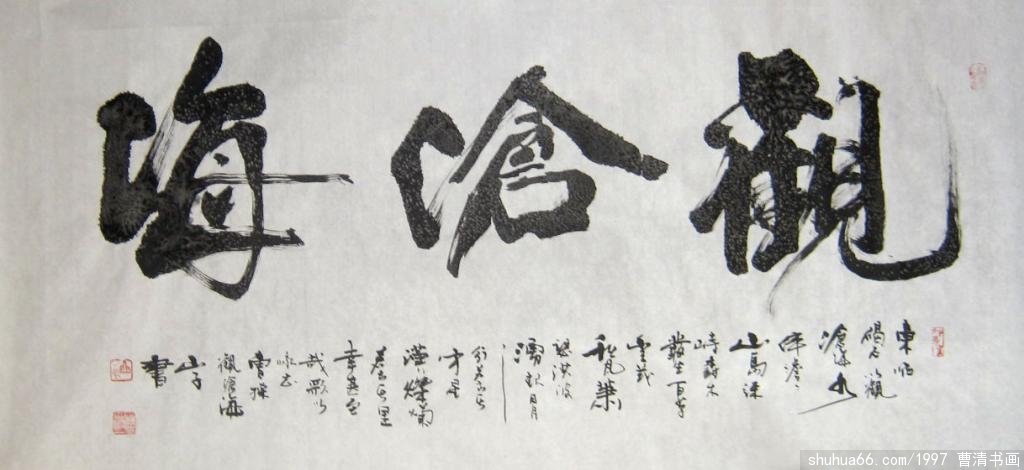 觀滄海
東临
碣石以觀
滄海水
何澹澹
山島竦
峙樹木
叢生百草
豐茂
秋風蕭
瑟洪波
湧起日月
之
行若出其
中星
漢燦爛
若出其里
幸甚至
哉歌以
咏志
曹操
觀滄海
山子
書
shuhua66.com/1997 曹清书画